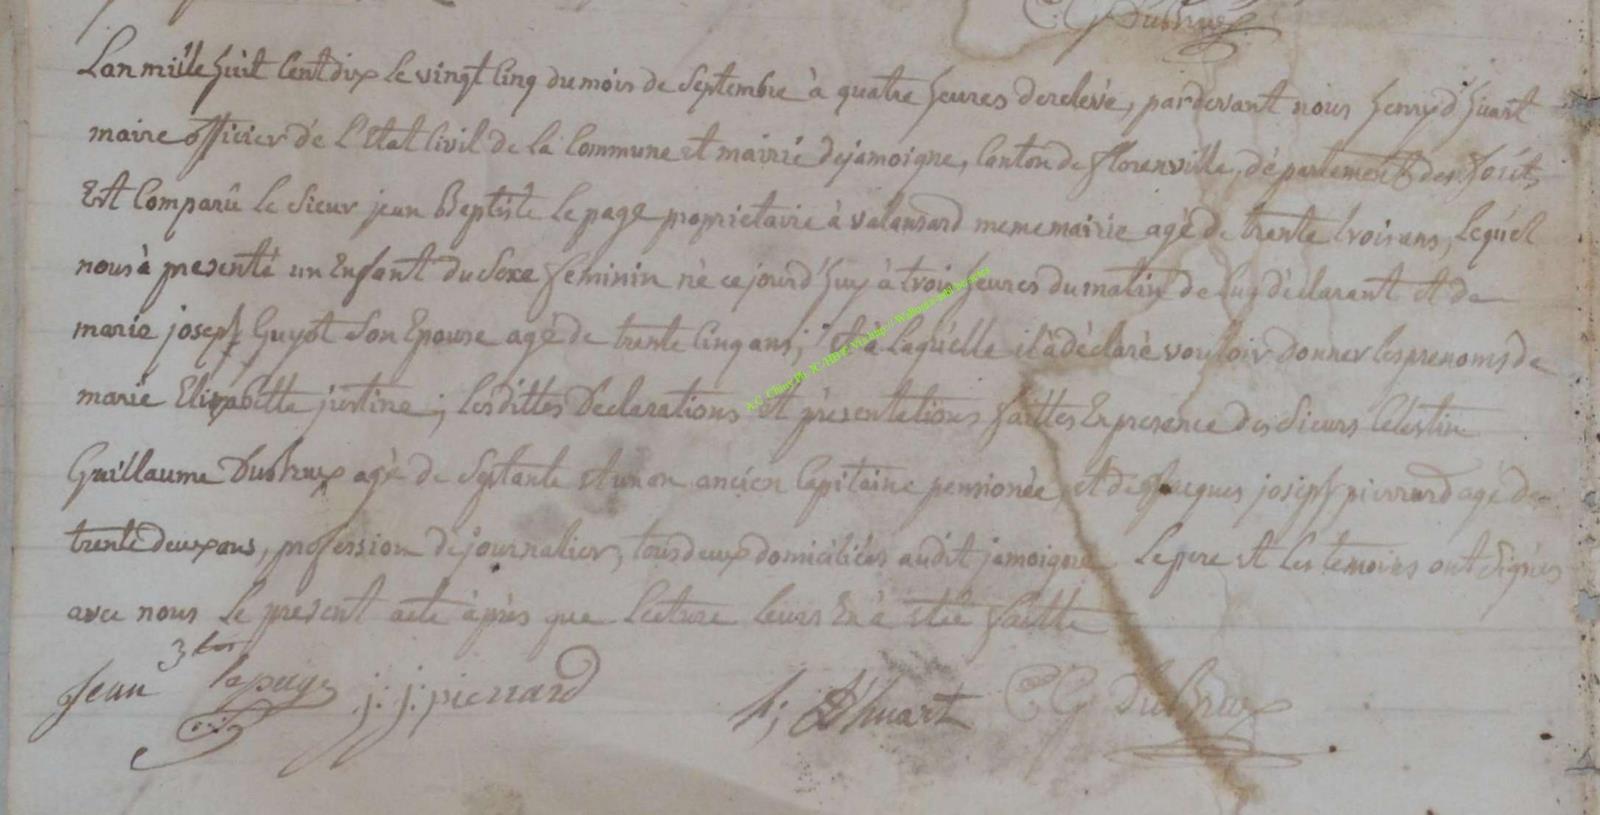 C. G. Dubrux
L'an mille huit Cent dix Le vingt Cinq du mois de Septembre à quatre heures de relevée, pardevant nous henry d'huart
maire officier dé L'Etat Civil de la Commune et mairie de jamoigne, Canton de florenville, département des forêts
Est Comparû Le Sieur jean Baptiste Lepage proprietaire à valansard meme mairie agé de trente trois ans, Lequel
nous à presenté un Enfant du Sexe feminin né ce jourd'huy à trois heures du matin de Luy déclarant et de
marie joseph Guyot Son Epouse agé de trente Cinq ans, et à Laquelle il à déclaré vouloir Donner les prenoms de
marie Elisabette justine; Lesdittes Declarations et présentations faittes En presence des Sieurs Celestin
Guillaume Dubrux agé de Septante et un an ancien Capitaine pensionée, et de jacques joseph pierrard agé de
trente deux ans, profession de journalier, tous deux domiciliés audit jamoigne Le pere et les temoins ont Signés
avec nous Le present acte àprès que Lecture Leurs En à etée faitte
Jean Btte lapage j: j: pierrard h; d'huart C G DuBrux